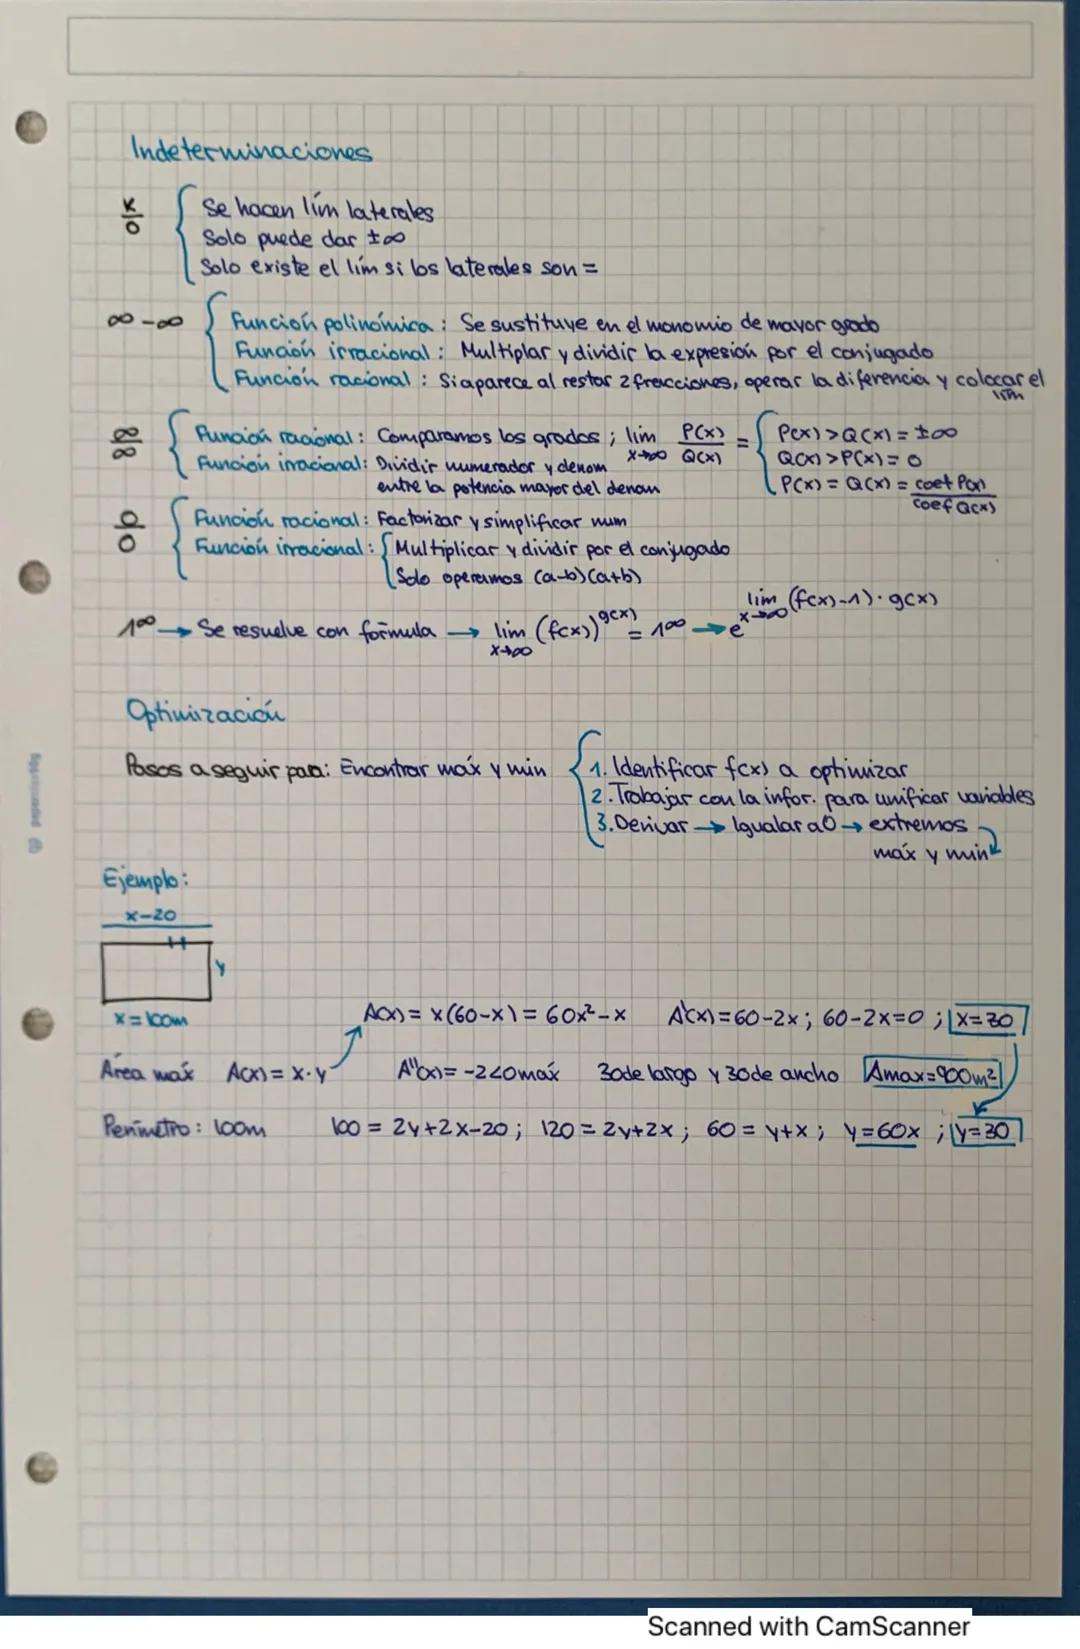 Indeterminaciones
K/0 { Se hacen lím laterales
Solo puede dar ±∞
Solo existe el lím si los laterales son =
∞-∞ { Función polinómica: Se sustituye en el monomio de mayor grado
Función irracional: Multiplar y dividir la expresión por el conjugado
Función racional: Si aparece al restar 2 fracciones, operar la diferencia y colocar el
lím
∞/∞ { Función racional: Comparamos los grados; lim x→∞ P(x)/Q(x) = { P(x)>Q(x)=±∞
Función irracional: Dividir numerador y denom Q(x)>P(x)=0
entre la potencia mayor del denom P(x)=Q(x)= coef P(x)/coef Q(x)
0/0 { Función racional: Factorizar y simplificar num
Función irracional: { Multiplicar y dividir por el conjugado
Solo operamos (a-b)(a+b)
1^∞ → Se resuelve con fórmula → lim x→∞ (f(x))^g(x) = 1^∞ → e^lim x→∞ (f(x)-1)·g(x)
Optimización
Pasos a seguir para: Encontrar máx y mín { 1. Identificar f(x) a optimizar
2. Trabajar con la infor. para unificar variables
3. Derivar → Igualar a 0 → extremos
máx y mín
Ejemplo:
x-20
y
x=100m
A(x)= x(60-x)= 60x²-x A'(x)=60-2x; 60-2x=0; x=30
Área máx A(x)= x·y A''(x)= -2<0 máx 30 de largo y 30 de ancho Amax=900m²
Perímetro: 100m 100 = 2y+2x-20; 120=2y+2x; 60=y+x; y=60x; y=30
Scanned with CamScanner